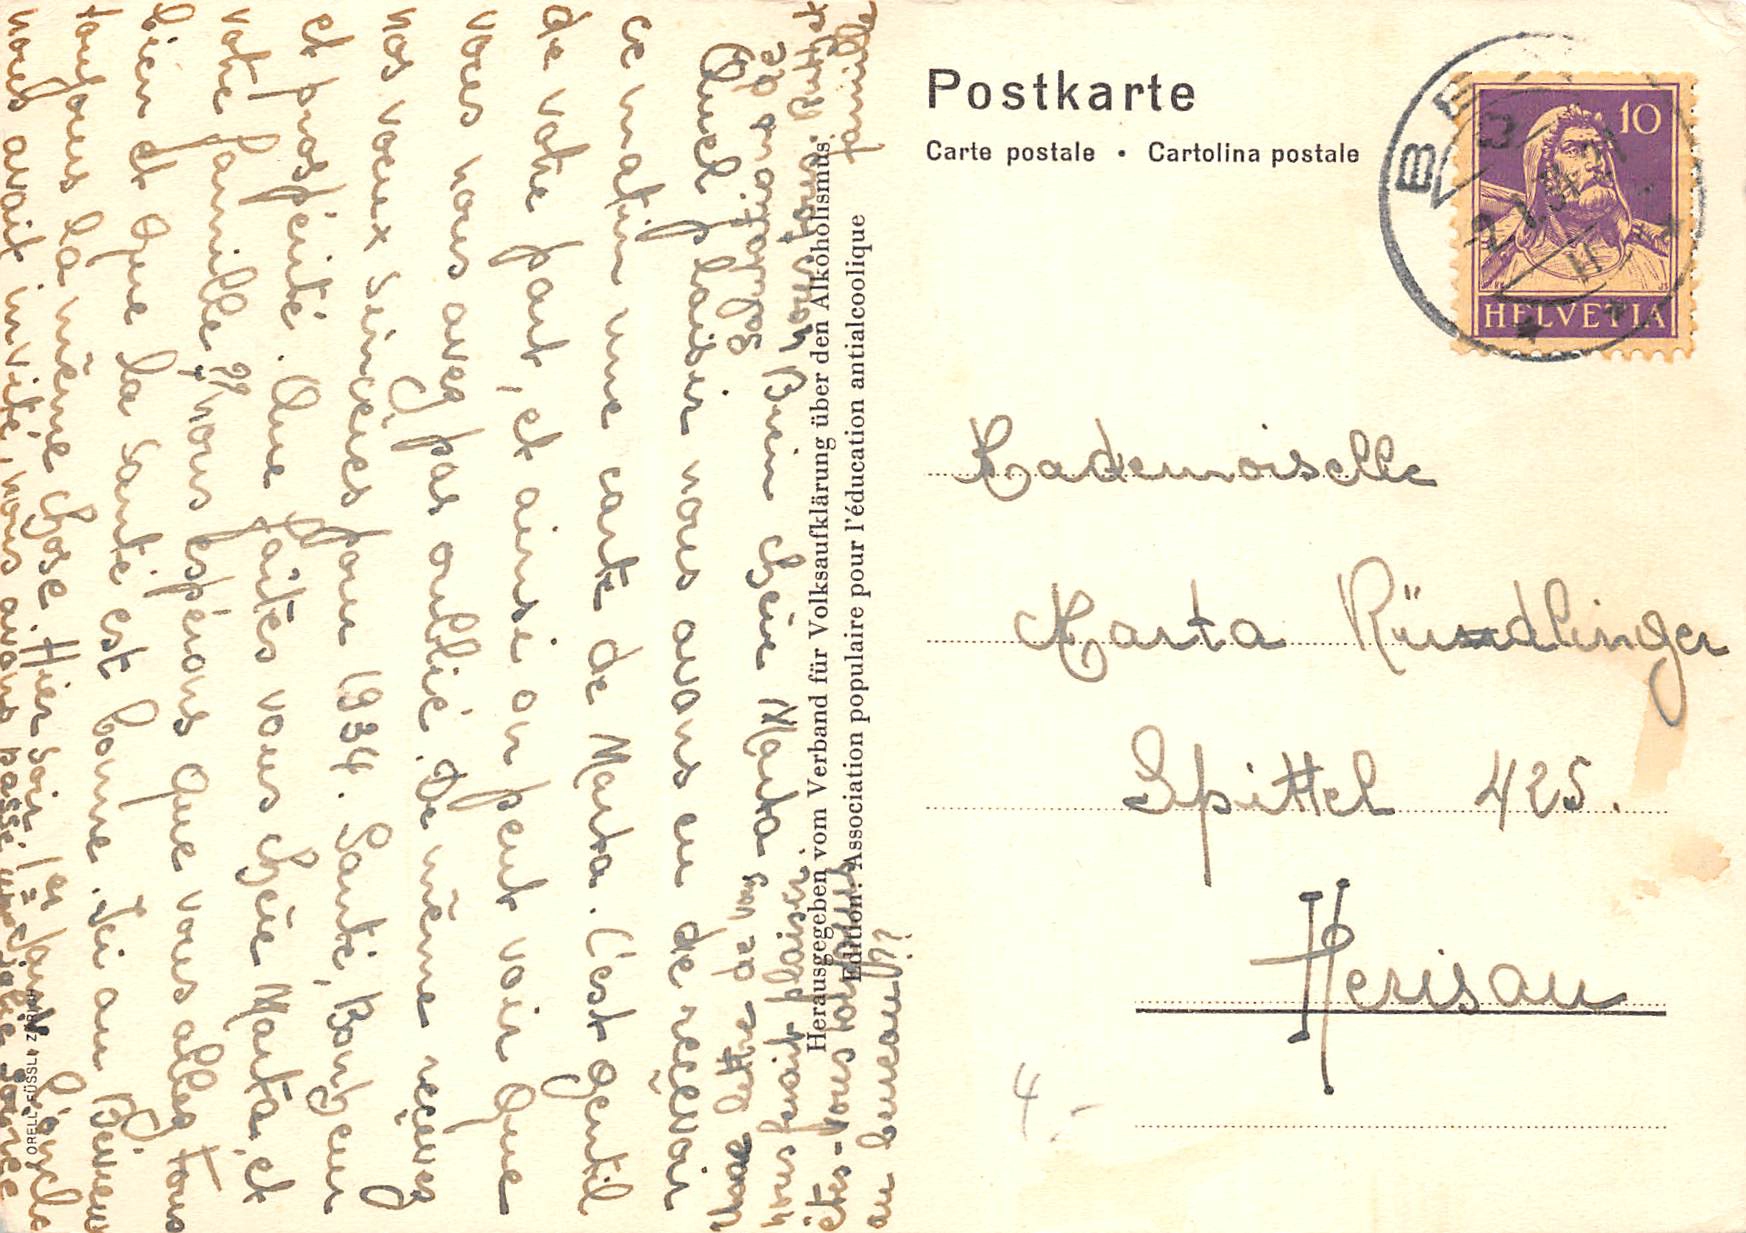 Postkarte
Carte postale • Cartolina postale
10
HELVETIA
BEX
2.1.34
Mademoiselle
Marta Rüdlinger
Spittel 425.
Herisau
4.-
Herausgegeben vom Verband für Volksaufklärung über den Alkoholismus
Edition: Association populaire pour l'éducation antialcoolique
ORELL FÜSSLI ZÜRICH
Bien chère Marta
Quel plaisir nous avons eu de recevoir
ce matin une carte de Marta. C'est gentil
de votre part, et ainsi on peut voir que
vous nous avez pas oublié. De même recevez
nos voeux sincères pour 1934. Santé, Bonheur
et prospérité. Que faites vous chère Marta, et
votre famille?? nous espérons que vous allez tous
bien et que la santé est bonne. Ici au Bévieux
toujours la même chose. Hier soir 1er Janvier l'oncle
nous avait invité, nous avons passé une jolie soirée
lettre de vous
nous ferait plaisir.
êtes-vous toujours
au bureau??
famille